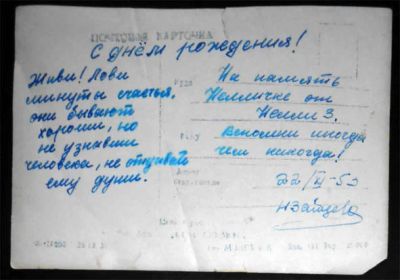 ПОЧТОВАЯ КАРТОЧКА
С днём рождения!
Живи! Лови
минуты счастья,
они бывают
хороши, но
не узнавши
человека, не открывай
ему души.
Куда
На память
Неличке от
Нелли З.
Кому
Вспомни иногда
чем никогда!
Адрес
22/II-53
НЗайцева